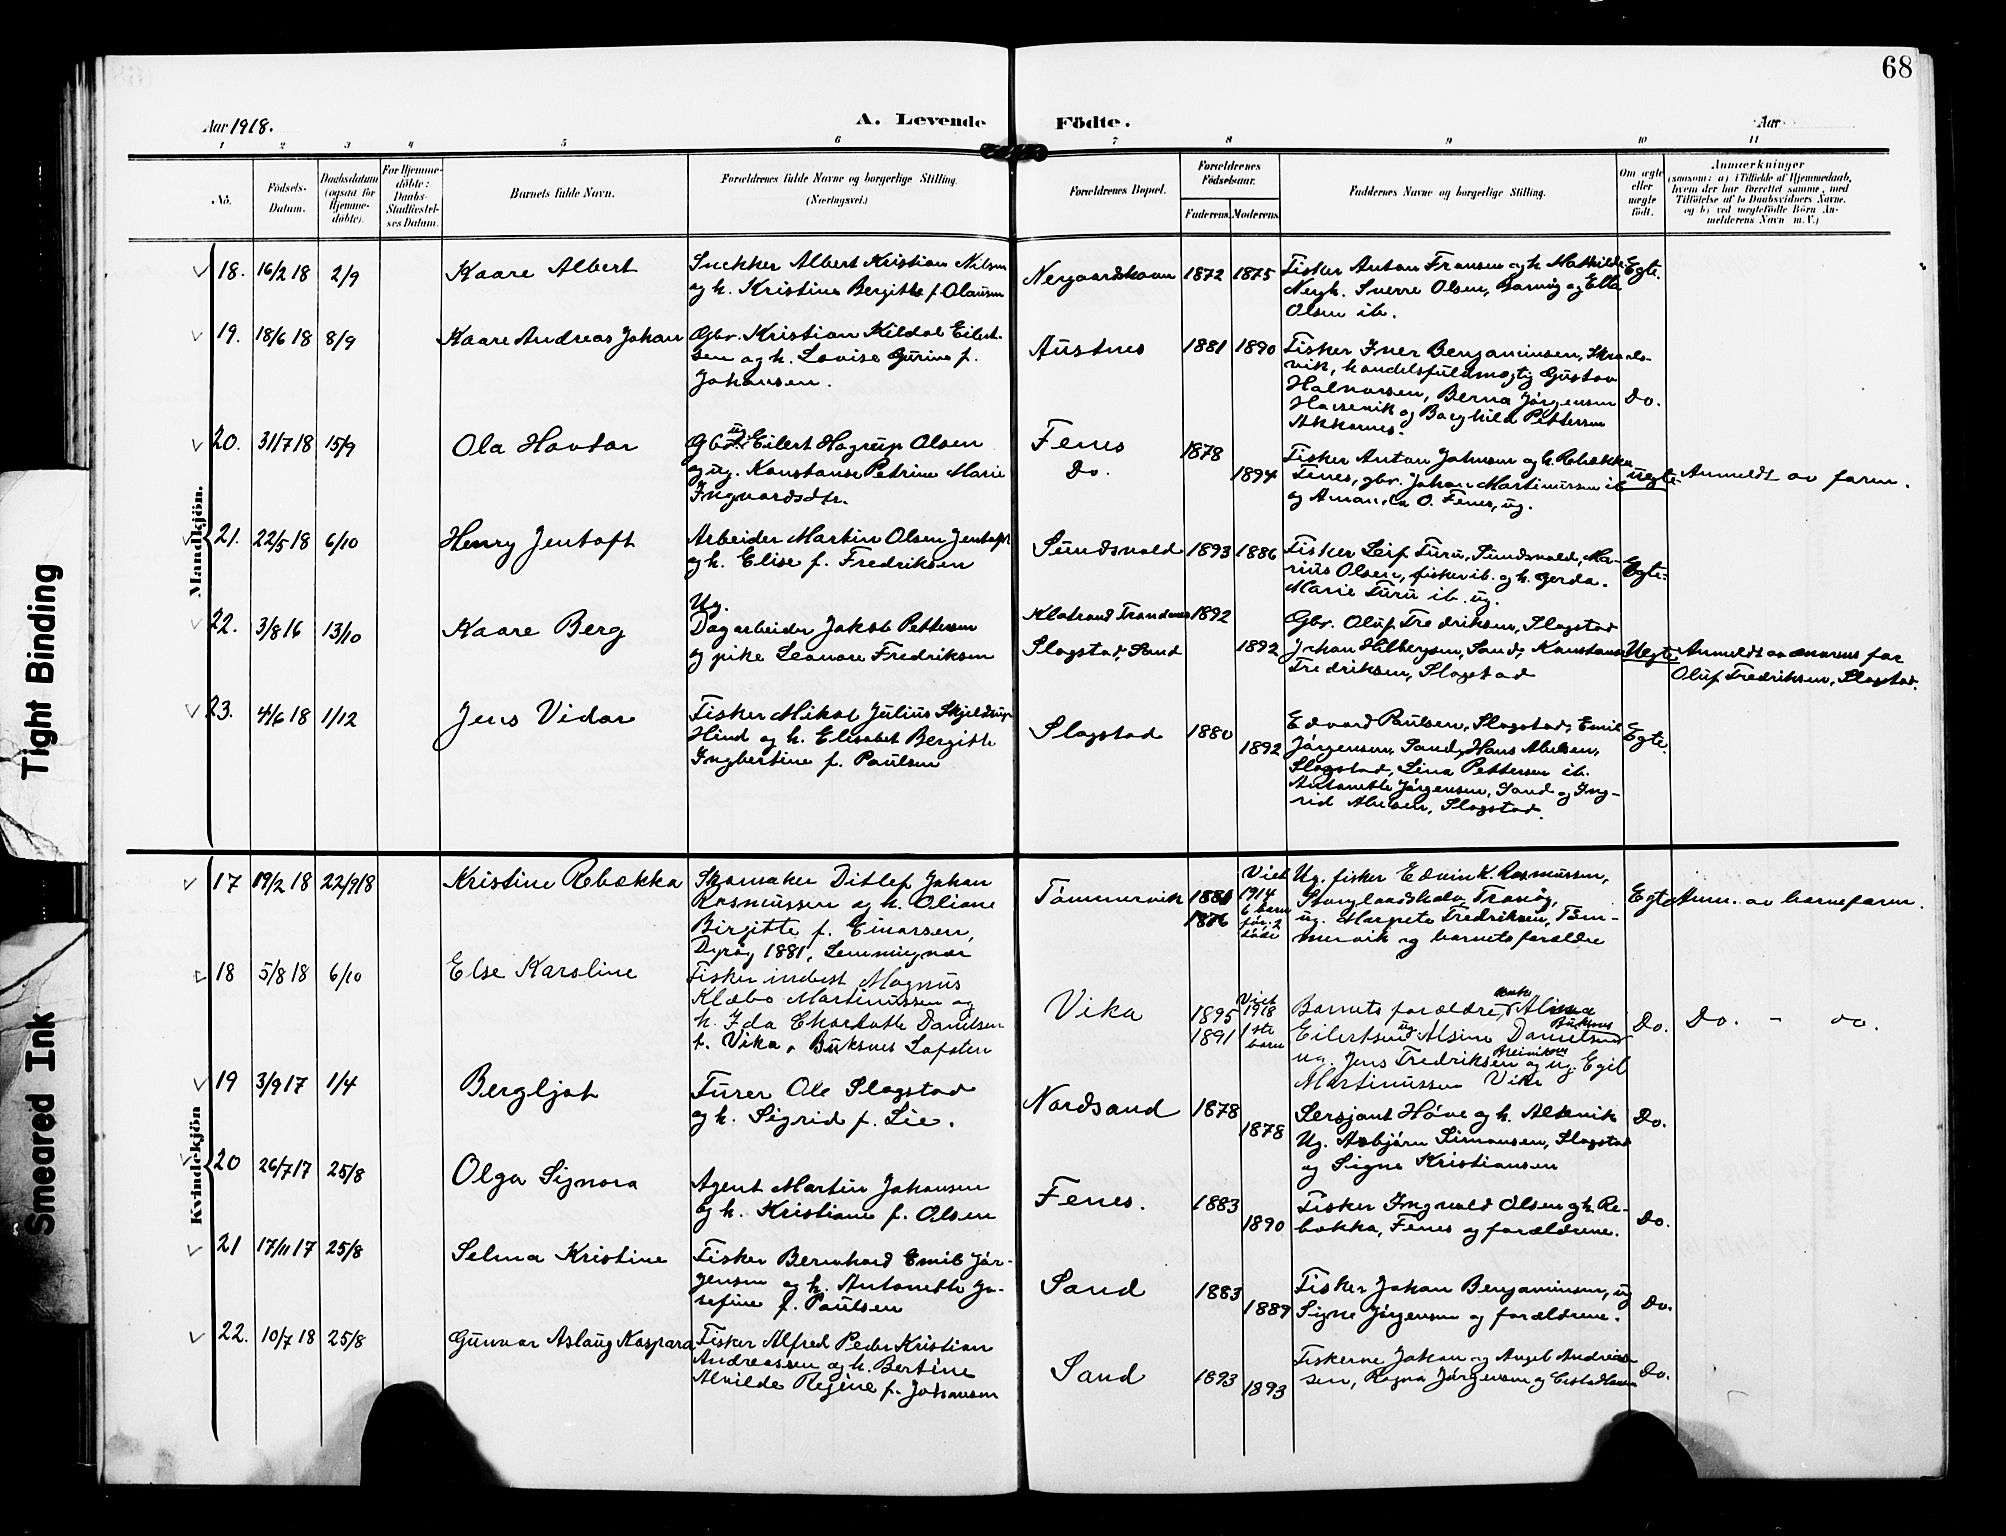 68
Aar 1918.
A. Levende
Födte.
Aar
1 2 3 4 5 6 7 8 9 10 11
No.
Födsels-
Datum.
Daabsdatum
(ogsaa for
Hjemme-
döbte).
For Hjemme-
döbte:
Daabs-
Stadfæstel-
ses Datum.
Barnets fulde Navn.
Forældrenes fulde Navne og borgerlige Stilling.
(Næringsvei.)
Forældrenes Bopæl.
Forældrenes
Fødselsaar.
Faderens.
Moderens.
Faddernes Navne og borgerlige Stilling.
Om ægte
eller
uægte
født.
Anmærkninger
(saasom: a) i Tilfælde af Hjemmedaab,
hvem der har forrettet samme, med
Tilföielse af to Daabsvidners Navne,
og b) ved uægtefödte Börn An-
melderens Navn m. V.)
Mandkjön.
18. 16/2 18 2/9
Kaare Albert
Snekker Albert Kristian Nilsen
og h. Kristine Bergitte f. Olausen
Nergaardshavn 1872 1875
Fisker Anton Fransen og h. Mathilde
Nergh. Sverre Olsen, og Ella
Olsen ib.
Egte.
19. 18/6 18 8/9
Kaare Andreas Johan
Gbr. Kristian Kildal Eilert-
sen og h. Lovise Gurine f.
Johansen.
Austnes 1881 1890
Fisker Iver Benjaminsen,
vik, handelsfuldmægtig Gustav
Halvorsen, Berna Jørgensen
Havsevik og Borghild Pettersen
Akkarnes.
Do.
20. 31/7 18 15/9
Ola Hovtor
ug.
Gbr. Eilert Hagrup Olsen
og ug. Konstanse Petrine Marie
Ingvardsdtr.
Fenes
Do.
1878
1894
Fisker Anton Johnsen og h. Rebekka
Fenes, gbr. Johan Martinussen ib
og Amanda O. Fenes, ug.
uegte
Anmeldt av farm.
21. 22/5 18 6/10
Henry Jentoft
Arbeider Martin Olsen Jentoft
og h. Elise f. Fredriksen
Sundsvold 1893 1886
Fisker Leif Furu, Sundsvold, Ma-
rius Olsen, fisker ib. og h. Gerda.
Marie Furu ib. ug.
Egte.
22. 3/8 16 13/10
Kaare Berg
Ug.
Dagarbeider Jakob Pettersen
og pike Leonore Fredriksen
Trondenes 1892
Slagstad, Sand 1892
Gbr. Oluf Fredriksen, Slagstad
Johan Hilbergsen, Sand, Konstanse
Fredriksen, Slagstad
Uegte
Anmeldt av far
Oluf Fredriksen, Slagstad.
23. 4/6 18 1/12
Jens Vidar
Fisker Mikal Julius Skjeldrup
Hind og h. Elisabet Bergitte
Ingbertine f. Paulsen
Slagstad 1880
1892
Edvard Paulsen, Slagstad, Emil
Jørgensen, Sand, Hans Abelsen,
Slagstad, Lina Pettersen ib.
Antonette Jørgensen, Sand og Ing-
rid Abelsen, Slagstad.
Egte.
Kvindekjön
17 19/2 18 22/9 18
Kristine Rebekka
Skomaker Ditlef Johan
Rasmussen og h. Oliane
Birgitte f. Einarsen,
Dyrøy 1881,
Tømmervik 1881
1876
Viet
1914
6 barn
før. 2
døde
Ug. fisker Edvin K. Rasmussen,
Stonglandshals, Tranøy,
ug. Margrete Fredriksen, Tøm-
mervik og barnets forældre
Egte
Anm. av barnefarm.
18 5/8 18 6/10
Else Karoline
Fisker inderst Magnus
Klæbo Martinussen og
h. Ida Charlotte Danielsen
f. Vika, Buksnes Lofoten
Vika
1895
1891
Viet
1918
1ste
barn
Barnets forældre, enke Alima
Eilertsen ug Alsine Danielsen Buksnes
ug. Jens Fredriksen og ug. Egil
Martinussen Vika
Do.
Do. - do.
19 3/9 17 1/4
Bergljot
Furer Ole Slagstad
og h. Sigrid f. Lie.
Nordsand 1878
1878
Sersjant Høve og h. Alsevik
Ug. Asbjørn Simonsen, Slagstad
og Signe Kristiansen
Do.
20 26/7 17 25/8
Olga Signora
Agent Martin Johansen
og h. Kristiane f. Olsen
Fenes. 1883
1890
Fisker Ingvald Olsen og h. Re-
bekka, Fenes og forældrene.
Do.
21 17/11 17 25/8
Selma Kristine
Fisker Bernhard Emil Jør-
gensen og h. Antonette Jo-
sefine f. Paulsen
Sand 1883
1889
Fisker Johan Benjaminsen, ug
Signe Jørgensen og forældrene.
Do.
22. 10/7 18 25/8
Gunvor Aslaug Kaspara
Fisker Alfred Peder Kristian
Andreassen og h. Bertine
Alvilde Regine f. Johansen
Sand 1893
1893
Fiskerne Johan og Angel Andreas-
sen, Ragna Jørgensen og
Do.
Tight Binding
Smeared Ink